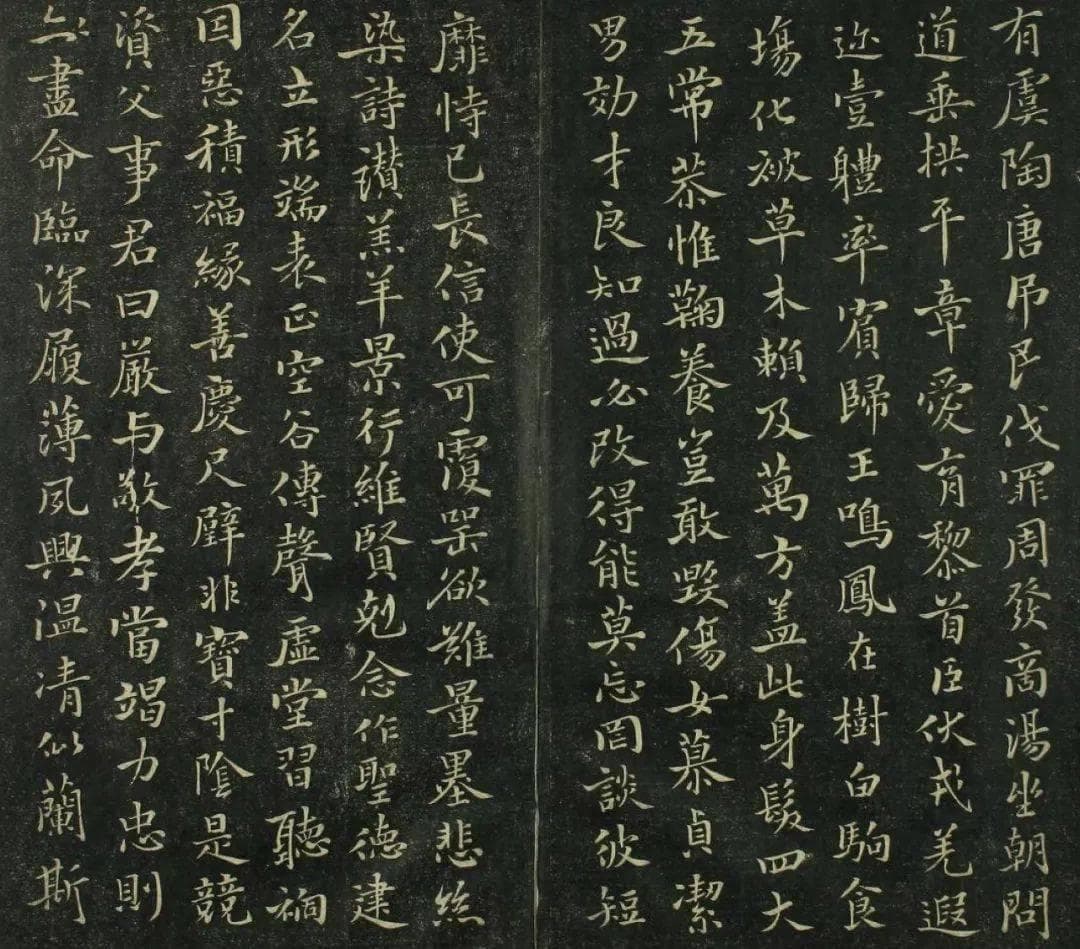 有虞陶唐吊民伐罪周發商湯坐朝問
道垂拱平章愛育黎首臣伏戎羌遐
迩壹軆率賓歸王鳴鳳在樹白駒食
塲化被草木賴及萬方盖此身髮四大
五常恭惟鞠養豈敢毀傷女慕貞潔
男効才良知過必改得能莫忘罔談彼短
靡恃己長信使可覆器欲難量墨悲絲
染詩讃羔羊景行維賢剋念作聖德建
名立形端表正空谷傳聲虛堂習聽禍
因惡積福緣善慶尺璧非寶寸陰是競
資父事君曰嚴与敬孝當竭力忠則
盡命臨深履薄夙興温清似蘭斯